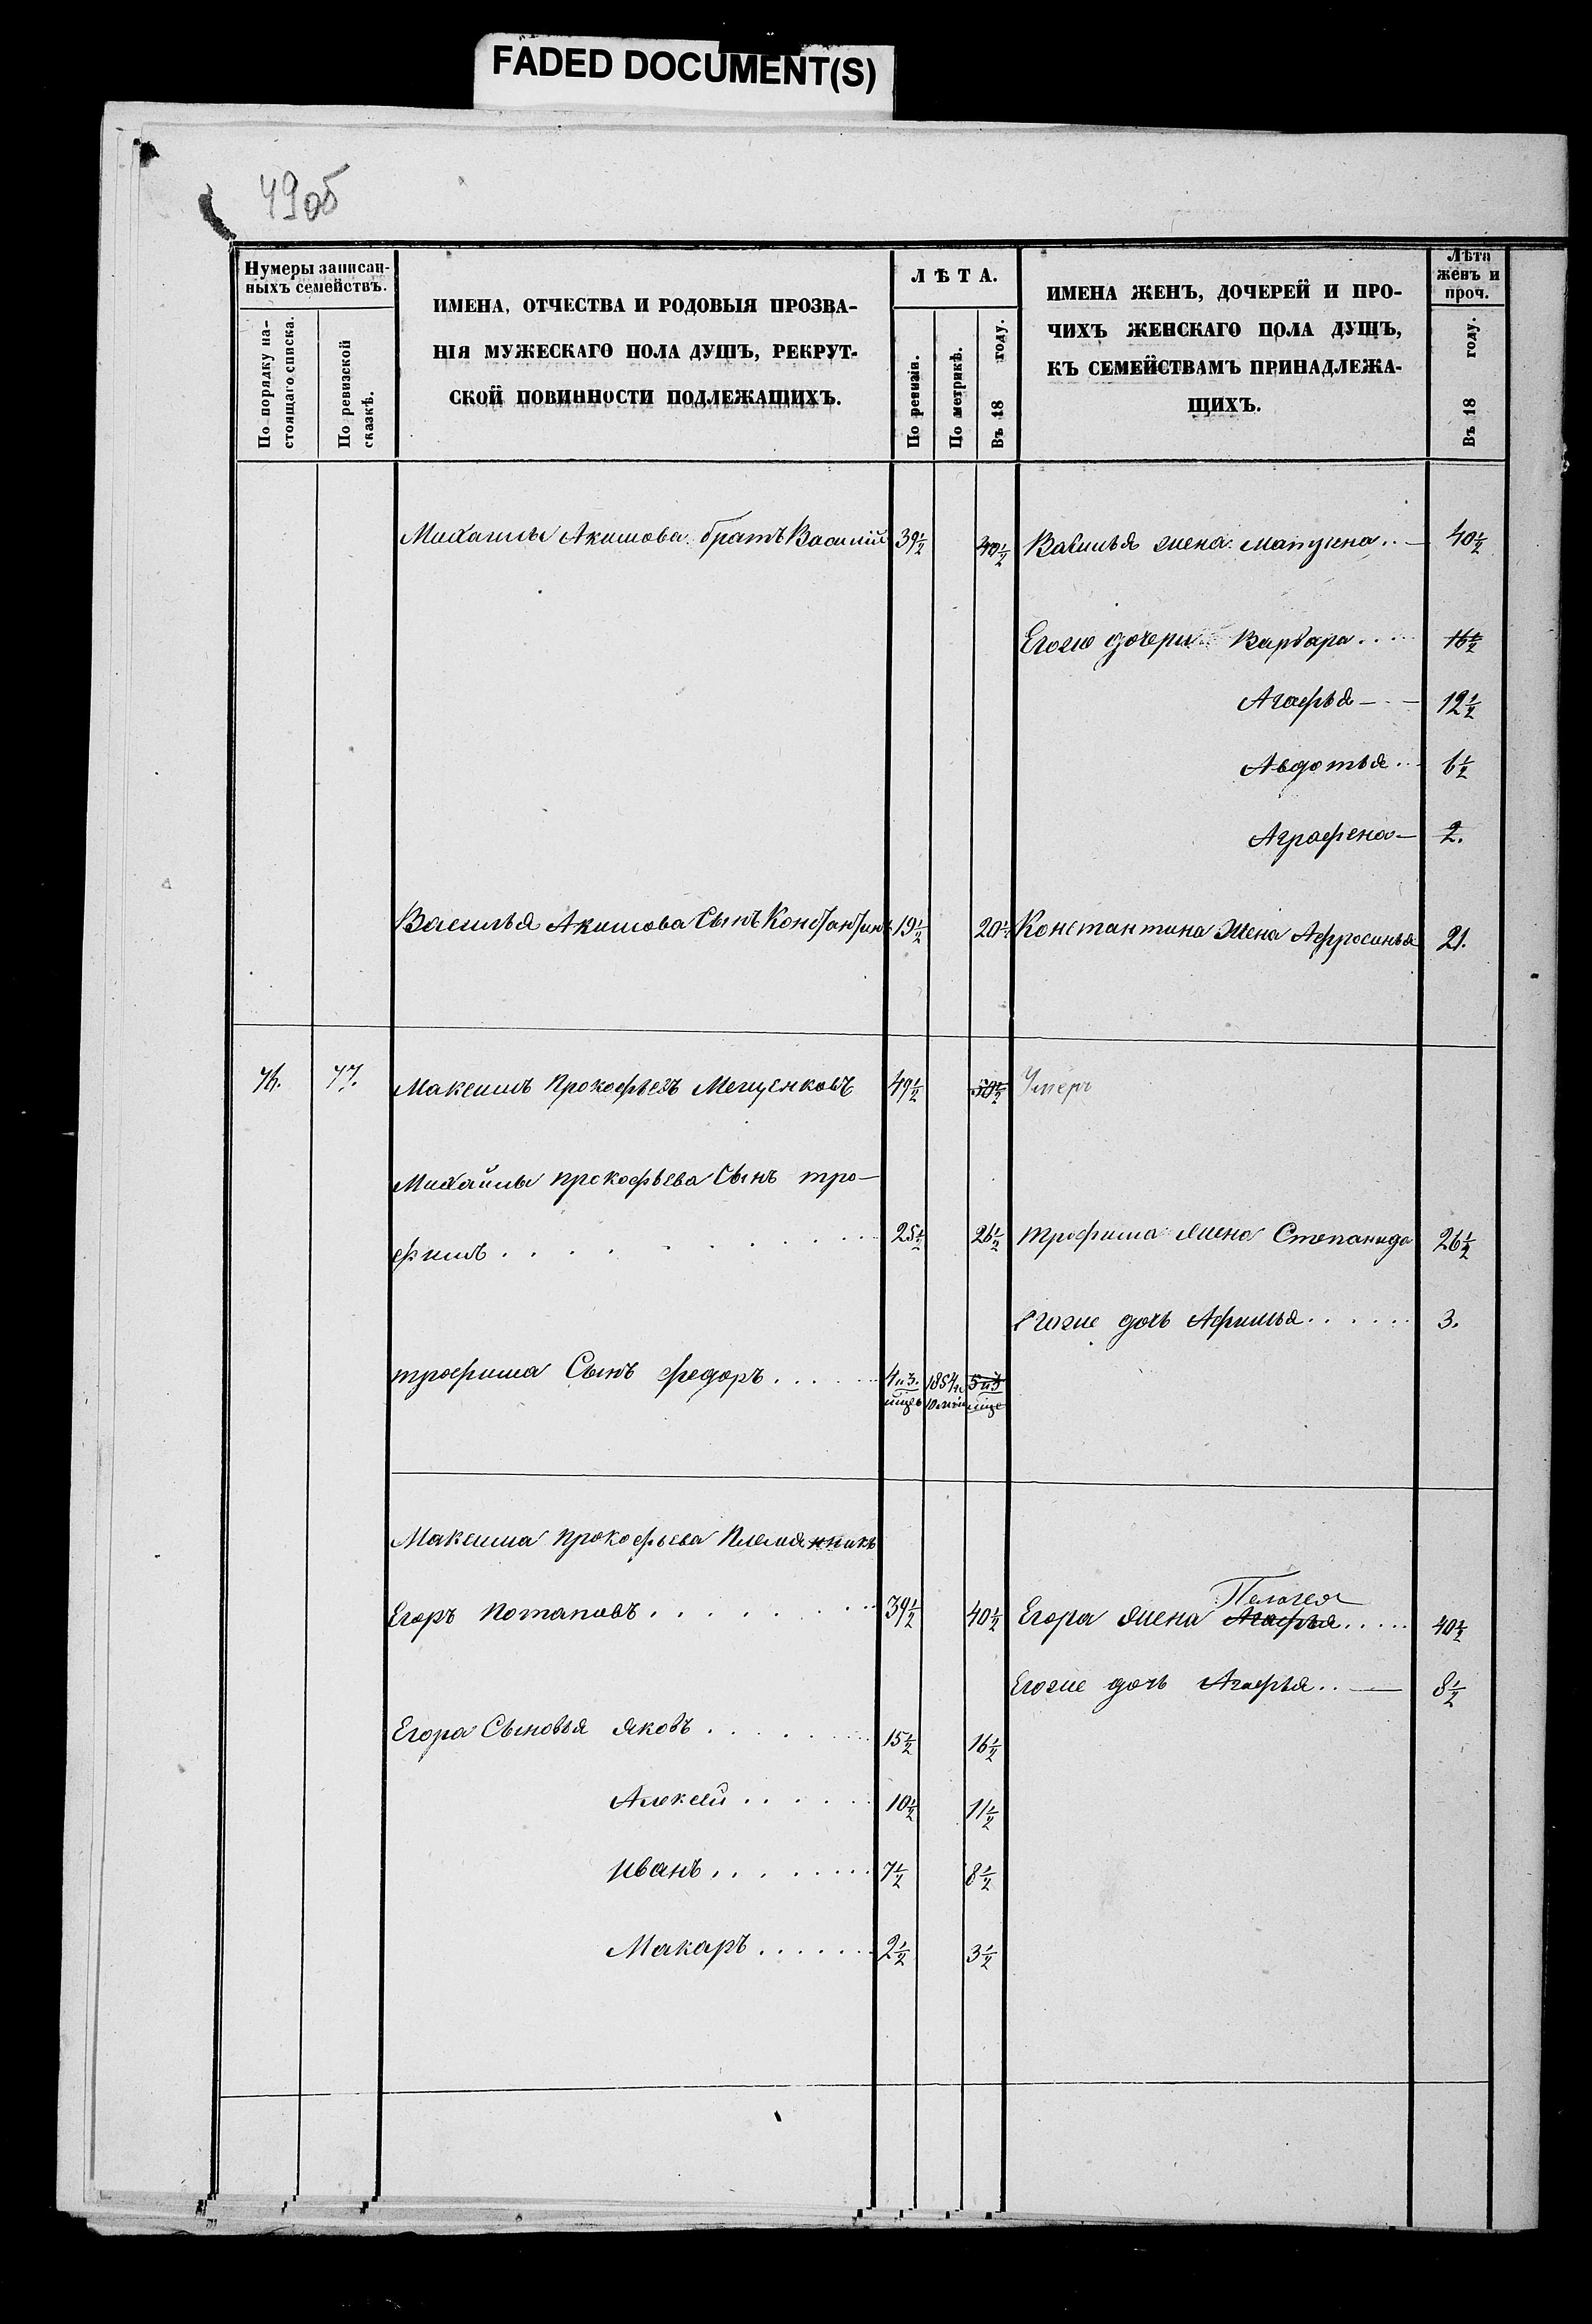 FADED DOCUMENT(S)
49об
Нумеры записан-
ныхъ семействъ.
По порядку на-
стоящаго списка.
По ревизской
сказкѣ.
ИМЕНА, ОТЧЕСТВА И РОДОВЫЯ ПРОЗВА-
НІЯ МУЖЕСКАГО ПОЛА ДУШЪ, РЕКРУТ-
СКОЙ ПОВИННОСТИ ПОДЛЕЖАЩИХЪ.
ЛѢТА.
По ревизіи.
По метрикѣ.
Въ 18 году.
ИМЕНА ЖЕНЪ, ДОЧЕРЕЙ И ПРО-
ЧИХЪ ЖЕНСКАГО ПОЛА ДУШЪ,
КЪ СЕМЕЙСТВАМЪ ПРИНАДЛЕЖА-
ЩИХЪ.
Лѣта
женъ и
проч.
Въ 18 году.
Михаилы Акимова братъ Василій 39½ 40½ Василья жена 40½
Егоже дочери Варвара.... 16½
Агафья 12½
Авдотья.. 6½
Аграфена 2.
Василья Акимова Сынъ Константинъ 19½ 20½ Константина Жена Афросинья 21.
76. 77. Максимъ Прокофьевъ 49½ 50½ Умеръ
Михайлы прокофьева Сынъ тро-
фимъ........ 25½ 26½ трофима жена Степанида 26½
Егоже дочь Афимья...... 3.
трофима Сынъ федоръ..... 4 и 3. 1854 5 и 3
Максима Прокофьева Племянникъ
Егоръ Потаповъ........ 39½ 40½ Егора жена Агафья Пелагея..... 40½
Егоже дочь Агафья.. 8½
Егора Сыновья Яковъ...... 15½ 16½
Алексей..... 10½ 11½
Иванъ....... 7½ 8½
Макаръ...... 2½ 3½